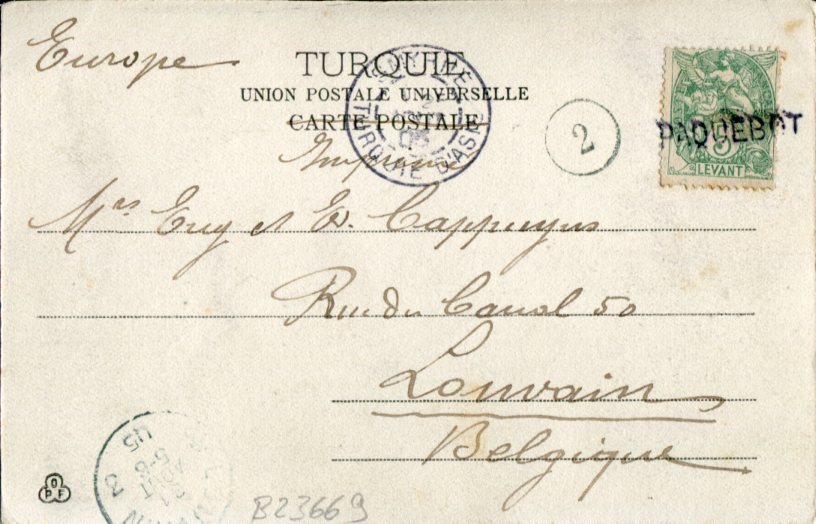 Europe
TURQUIE
UNION POSTALE UNIVERSELLE
CARTE POSTALE
SMYRNE
TURQUIE D'ASIE
05
2
PAQUEBOT
5
LEVANT
Imprimé
Mrs Eug et Ed. Cappuyns
Rue du Canal 50
Louvain
Belgique
OPF
B23669